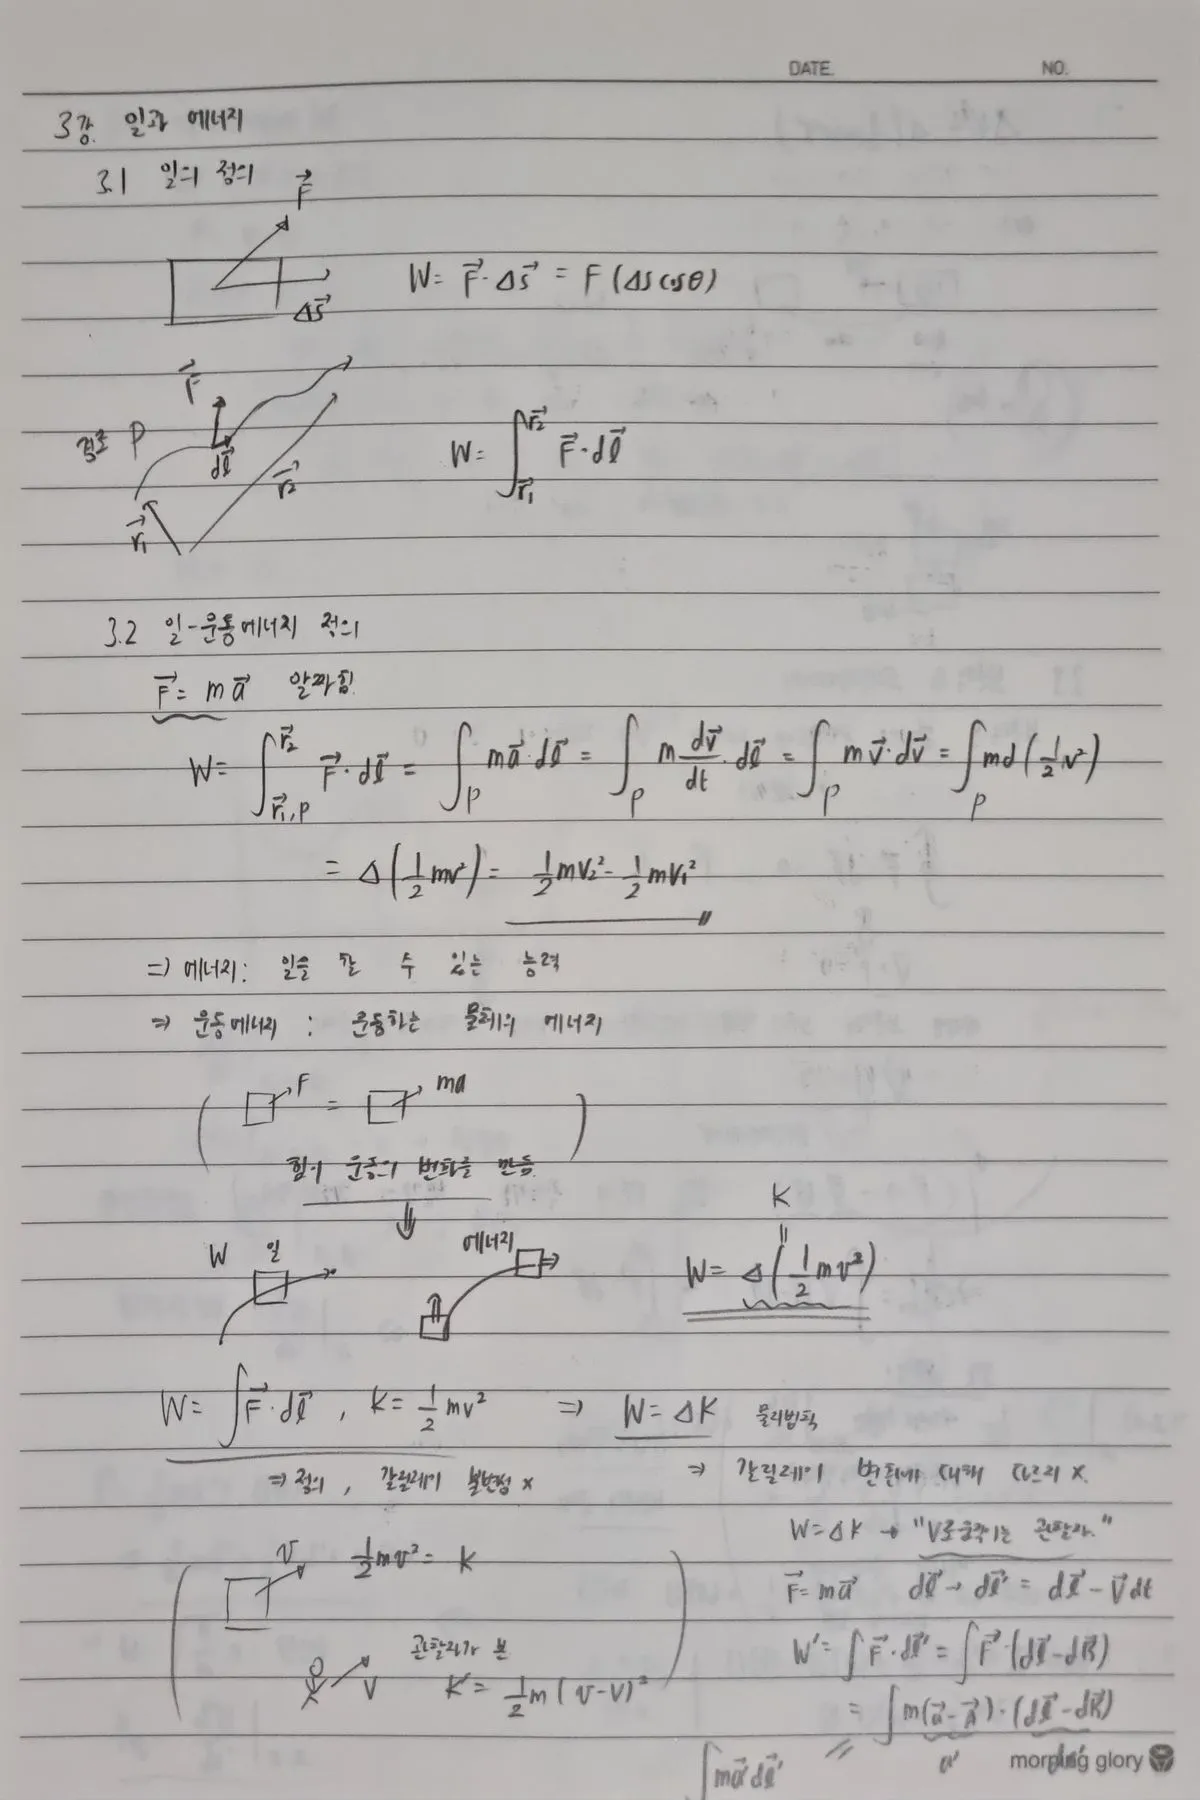 DATE. NO.
3강. 일과 에너지
3.1 일의 정의
F⃗
Δs⃗
W = F⃗·Δs⃗ = F(Δs cosθ)
F⃗
경로 P
dl⃗
r⃗₂
r⃗₁
W = ∫_{r⃗₁}^{r⃗₂} F⃗·dl⃗
3.2 일-운동에너지 정의
F⃗ = ma⃗ 알짜힘
W = ∫_{r⃗₁,P}^{r⃗₂} F⃗·dl⃗ = ∫_P ma⃗·dl⃗ = ∫_P m dv⃗/dt·dl⃗ = ∫_P mv⃗·dv⃗ = ∫_P md(½v²)
= Δ(½mv²) = ½mv₂² - ½mv₁²
⇒ 에너지: 일을 할 수 있는 능력
⇒ 운동에너지 : 운동하는 물체의 에너지
( F = ma )
힘이 운동의 변화를 만듦
⇓
W 일
에너지
K
॥
W = Δ(½mv²)
W = ∫F⃗·dl⃗ , K = ½mv² ⇒ W = ΔK 물리법칙
⇒ 정의, 갈릴레이 불변성 x
⇒ 갈릴레이 변환에 대해 다르지 x.
W = ΔK → "V로 움직이는 관찰자."
v ½mv² = K
F⃗ = ma⃗ dl⃗ → dl⃗' = dl⃗ - V⃗dt
관찰자가 본
V K' = ½m(v-V)²
W' = ∫F⃗·dl⃗' = ∫F⃗·(dl⃗-dR⃗)
= ∫m(a⃗-A⃗)·(dl⃗-dR⃗)
a'
∫ma⃗'dl⃗'
morning glory